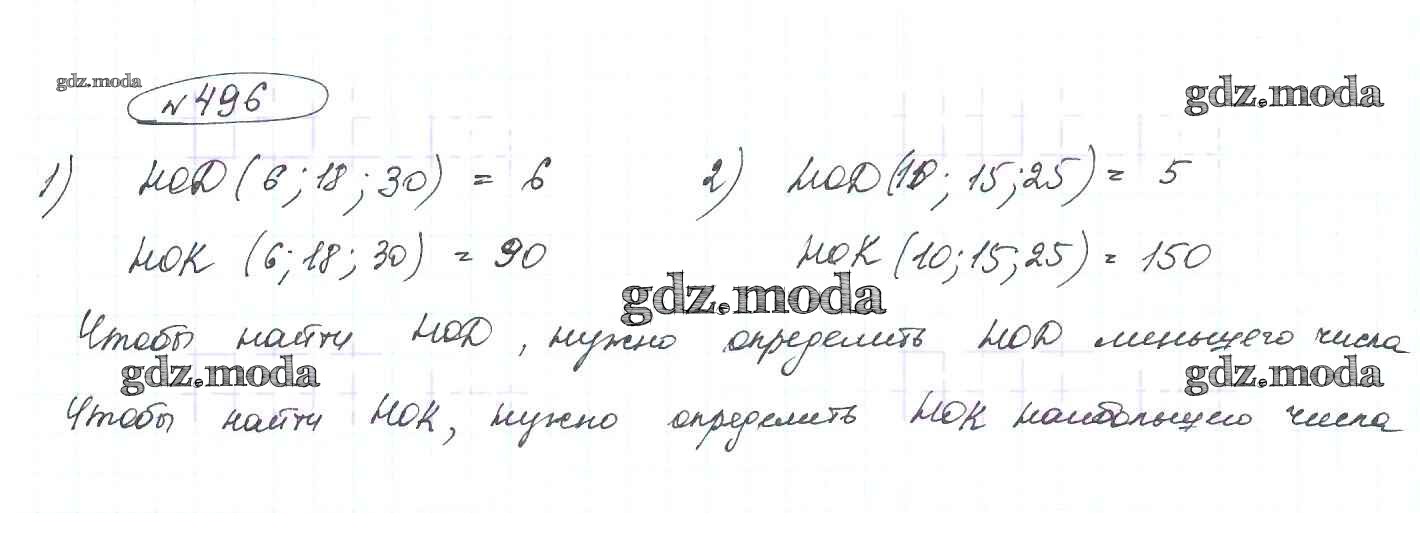 gdz.moda
gdz.moda
№ 496
1) НОД (6; 18; 30) = 6 2) НОД (10; 15; 25) = 5
НОК (6; 18; 30) = 90 НОК (10; 15; 25) = 150
gdz.moda
Чтобы найти НОД, нужно определить НОД меньшего числа
gdz.moda gdz.moda
Чтобы найти НОК, нужно определить НОК наибольшего числа